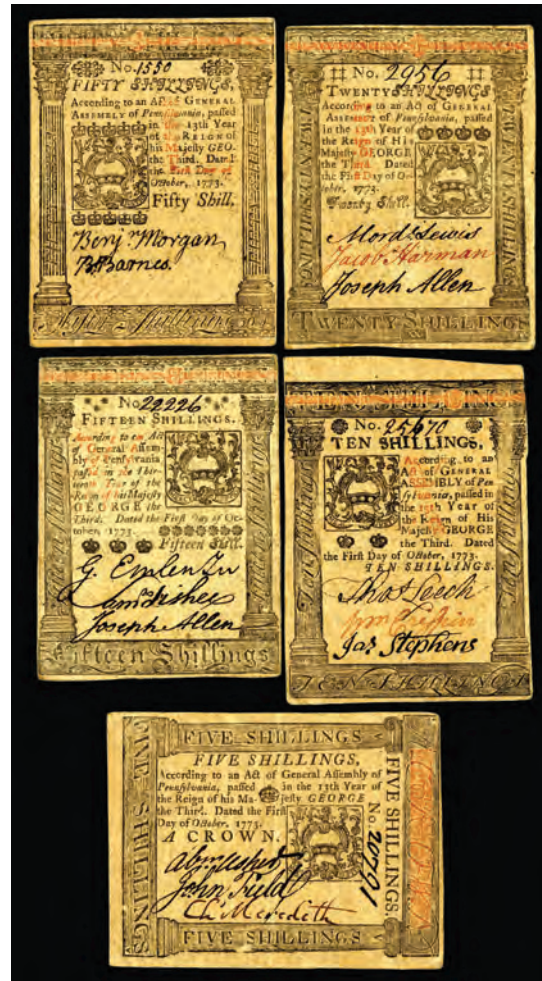 No. 1550
FIFTY SHILLINGS,
According to an ACT of GENERAL
ASSEMBLY of Pennsylvania, passed
in the 13th Year
of the REIGN of
his Majesty GEO.
the Third. Dated
the First Day of
October, 1773.
Fifty Shill.
Benj. Morgan
B. Barnes.
Fifty Shillings
No. 2956
TWENTY SHILLINGS
According to an Act of GENERAL
ASSEMBLY of Pennsylvania, passed
in the 13th Year of
the Reign of His
Majesty GEORGE
the Third. Dated
the First Day of Oc-
tober, 1773.
Twenty Shill.
Mord. Lewis
Jacob Harman
Joseph Allen
TWENTY SHILLINGS
TWENTY SHILLINGS
No 22226
FIFTEEN SHILLINGS,
According to an Act
of General Assem-
bly of Pensylvania
passed in the Thir-
teenth Year of the
Reign of his Majesty
GEORGE the
Third. Dated the First Day of Oc-
tober, 1773.
Fifteen Shill.
Joseph Allen
Fifteen Shillings
TEN SHILLINGS
No. 25670
TEN SHILLINGS,
According to an
Act of GENERAL
ASSEMBLY of Pen
sylvania, passed in
the 13th Year of
the Reign of His
Majesty GEORGE
the Third. Dated
the First Day of October, 1773.
TEN SHILLINGS.
Thos Leech
Jas Stephens
TEN SHILLINGS
FIVE SHILLINGS
FIVE SHILLINGS,
According to an Act of General Assembly of
Pennsylvania, passed in the 13th Year of
the Reign of his Ma- jesty GEORGE
the Third. Dated the First
Day of October, 1773.
A CROWN.
John Field
Ch. Meredith
FIVE SHILLINGS
FIVE SHILLINGS
FIVE SHILLINGS.
No 20791